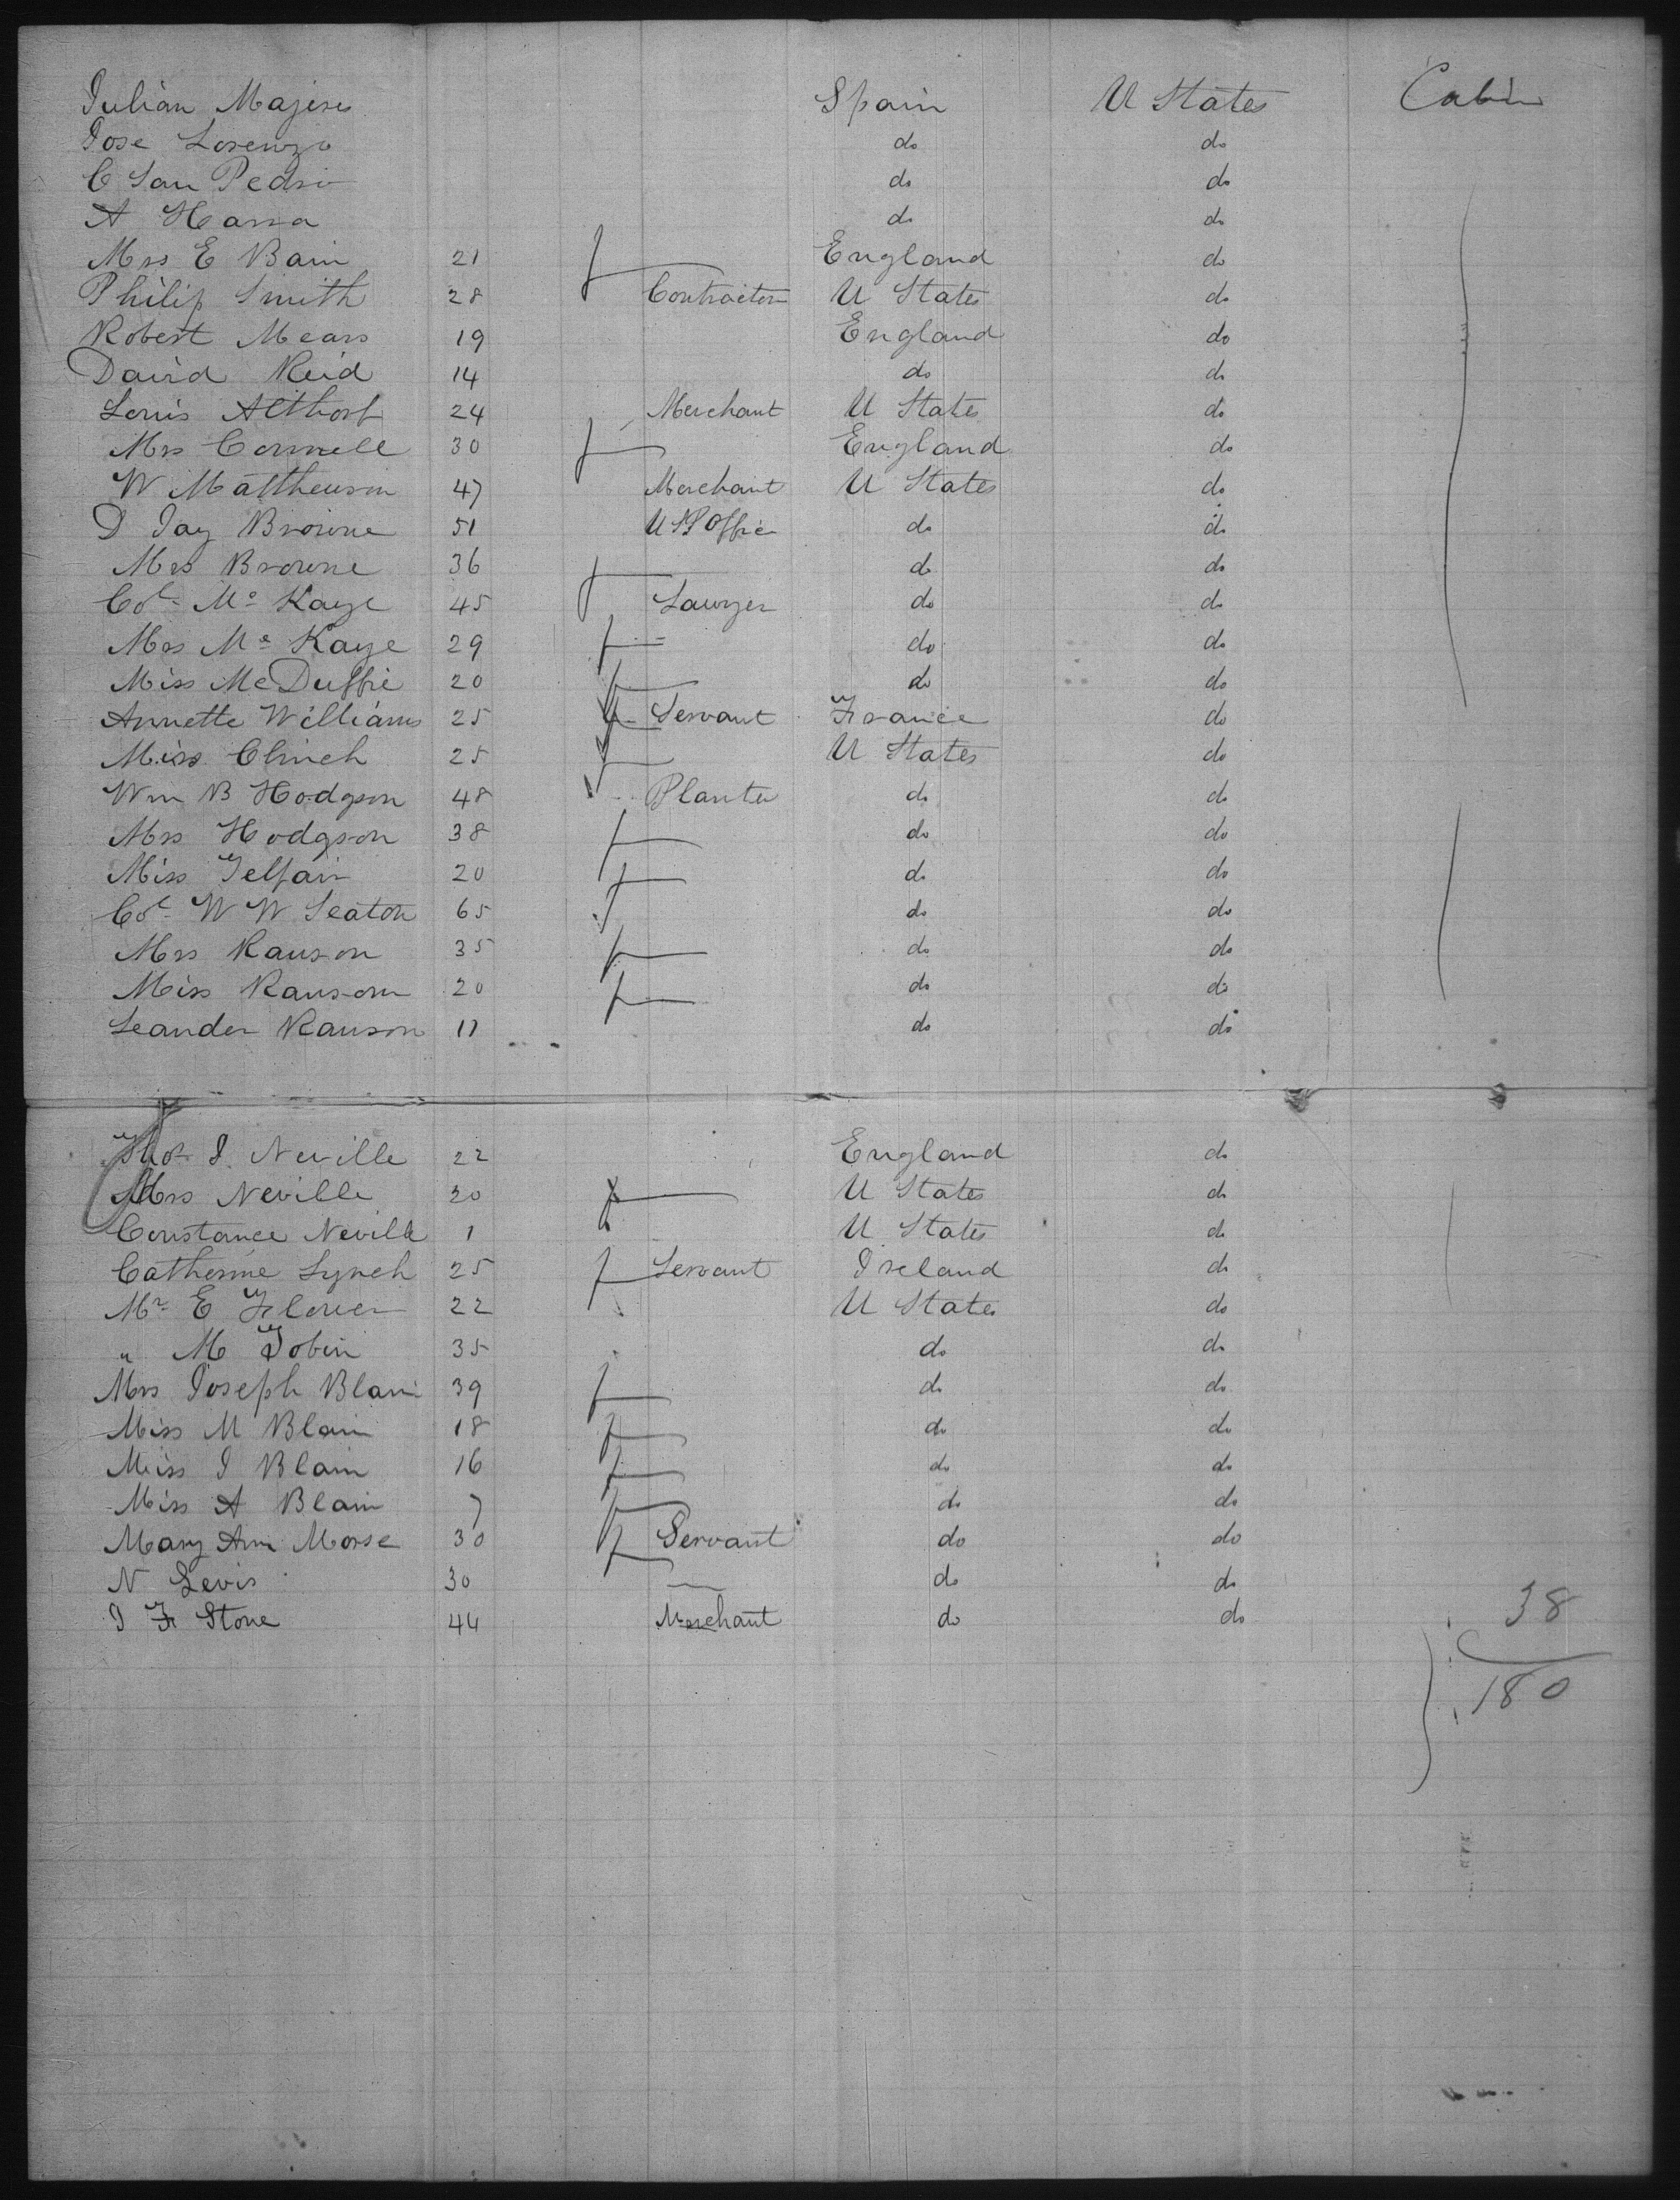 Julian Majere Spain U States Cabin
Jose Lorenzo do do
C San Pedro do do
A Harra do do
Mrs E Bain 21 f England do
Philip Smith 28 Contractor U States do
Robert Mears 19 England do
David Reid 14 do do
Louis Althorf 24 Merchant U States do
Mrs Connell 30 f England do
W Mattheuson 47 Merchant U States do
D Jay Browne 51 U S P Office do do
Mrs Browne 36 f do do
Col Mc Kaye 45 Lawyer do do
Mrs Mc Kaye 29 f do do
Miss McDuffie 20 f do do
Annette Williams 25 f Servant France do
Miss Clinch 25 f U States do
Wm B Hodgson 48 Planter do do
Mrs Hodgson 38 f do do
Miss Telfair 20 f do do
Col W W Seaton 65 do do
Mrs Ranson 35 f do do
Miss Ransom 20 f do do
Leander Ranson 11 do do
Thos J. Neville 22 England do
Mrs Neville 20 f U States do
Constance Neville 1 U States do
Catherine Lynch 25 f Servant Ireland do
Mr E Flower 22 U States do
" M Tobin 35 do do
Mrs Joseph Blain 39 f do do
Miss M Blain 18 f do do
Miss J Blain 16 f do do
Miss A Blain 7 f do do
Mary Ann Morse 30 f Servant do do
N Levis 30 — do do
J F Stone 44 Merchant do do
38
180